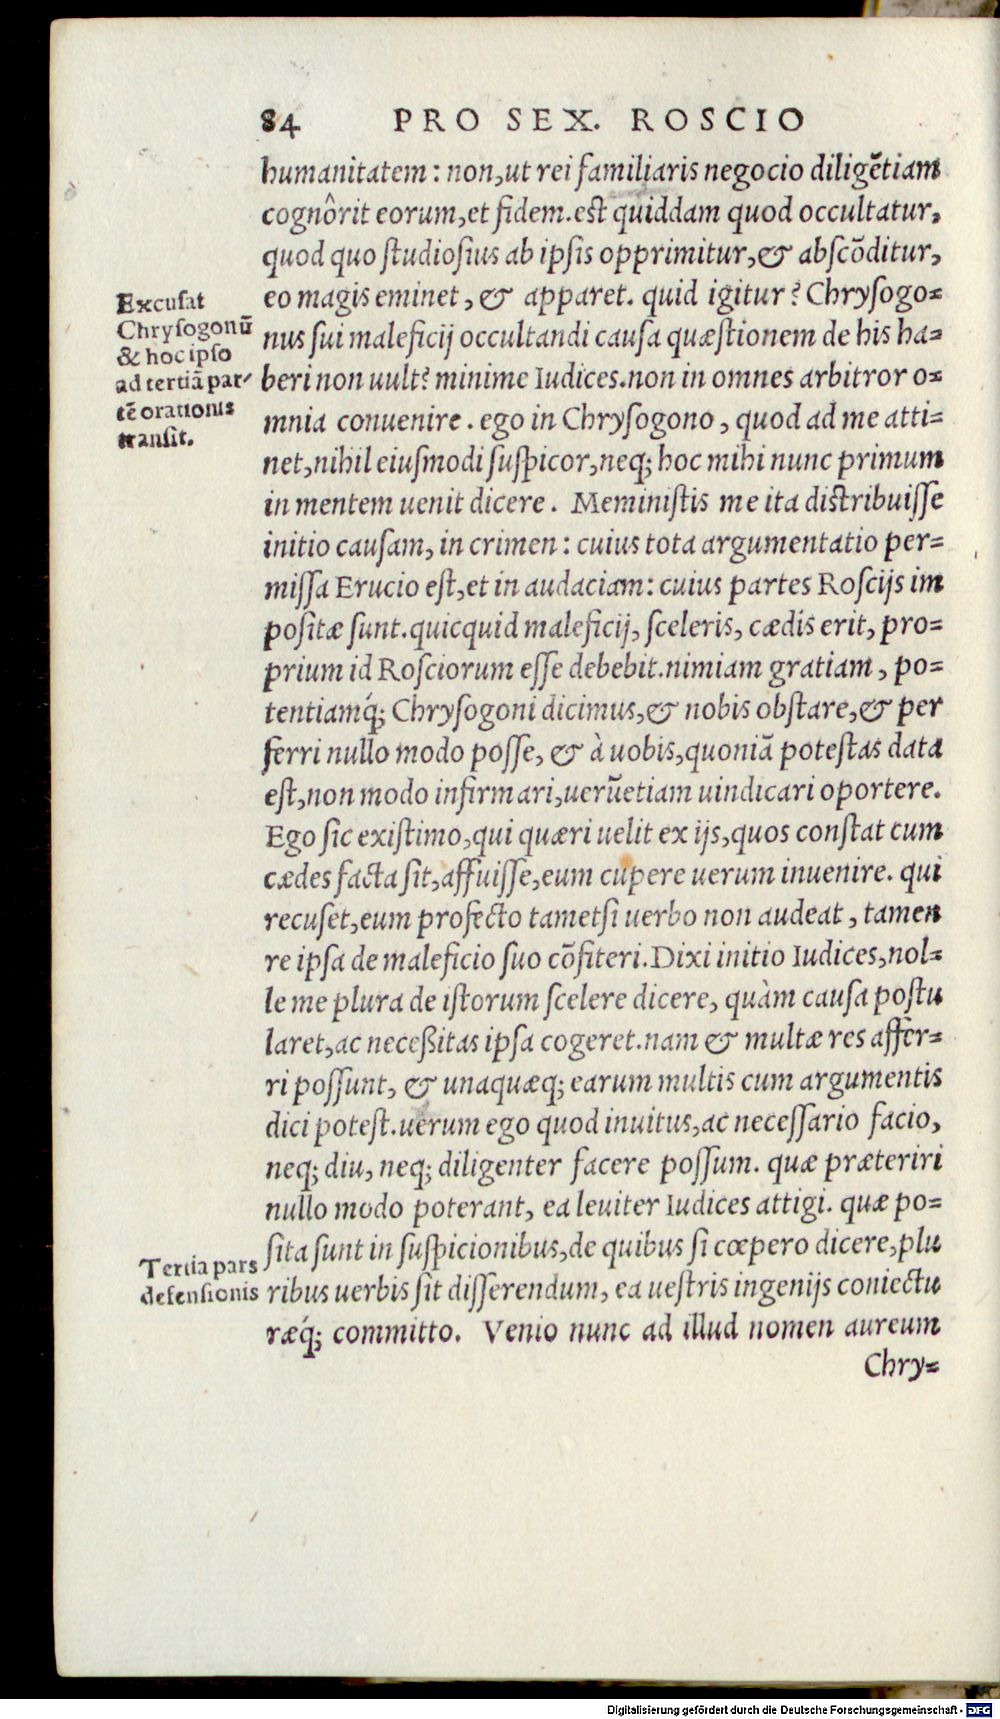 84 PRO SEX. ROSCIO
humanitatem: non, ut rei familiaris negocio diligẽtiam
cognôrit eorum, et fidem. est quiddam quod occultatur,
quod quo studiosius ab ipsis opprimitur, & abscõditur,
eo magis eminet, & apparet. quid igitur? Chrysogo=
nus sui maleficij occultandi causa quæstionem de his ha=
beri non uult? minime Iudices. non in omnes arbitror o=
mnia convenire. ego in Chrysogono, quod ad me atti=
net, nihil eiusmodi suspicor, neq; hoc mihi nunc primum
in mentem uenit dicere. Meministis me ita distribuisse
initio causam, in crimen: cuius tota argumentatio per=
missa Erucio est, et in audaciam: cuius partes Roscijs im
positæ sunt. quicquid maleficij, sceleris, cædis erit, pro=
prium id Rosciorum esse debebit. nimiam gratiam, po=
tentiamq́; Chrysogoni dicimus, & nobis obstare, & per
ferri nullo modo posse, & à uobis, quoniã potestas data
est, non modo infirmari, uerũetiam uindicari oportere.
Ego sic existimo, qui quæri uelit ex ijs, quos constat cum
cædes facta sit, affuisse, eum cupere uerum invenire. qui
recuset, eum profecto tametsi uerbo non audeat, tamen
re ipsa de maleficio suo cõfiteri. Dixi initio Iudices, nol=
le me plura de istorum scelere dicere, quàm causa postu
laret, ac neceßitas ipsa cogeret. nam & multæ res affer=
ri possunt, & unaquæq; earum multis cum argumentis
dici potest. uerum ego quod inuitus, ac necessario facio,
neq; diu, neq; diligenter facere possum. quæ præteriri
nullo modo poterant, ea leviter Iudices attigi. quæ po=
sita sunt in suspicionibus, de quibus si cœpero dicere, plu
ribus uerbis sit disserendum, ea uestris ingenijs coniectu
ræq́; committo. Venio nunc ad illud nomen aureum
Chry=
Excusat
Chrysogonũ
& hoc ipso
ad tertiã par-
tẽ orationis
transit.
Tertia pars
defensionis
Digitalisierung gefördert durch die Deutsche Forschungsgemeinschaft - DFG